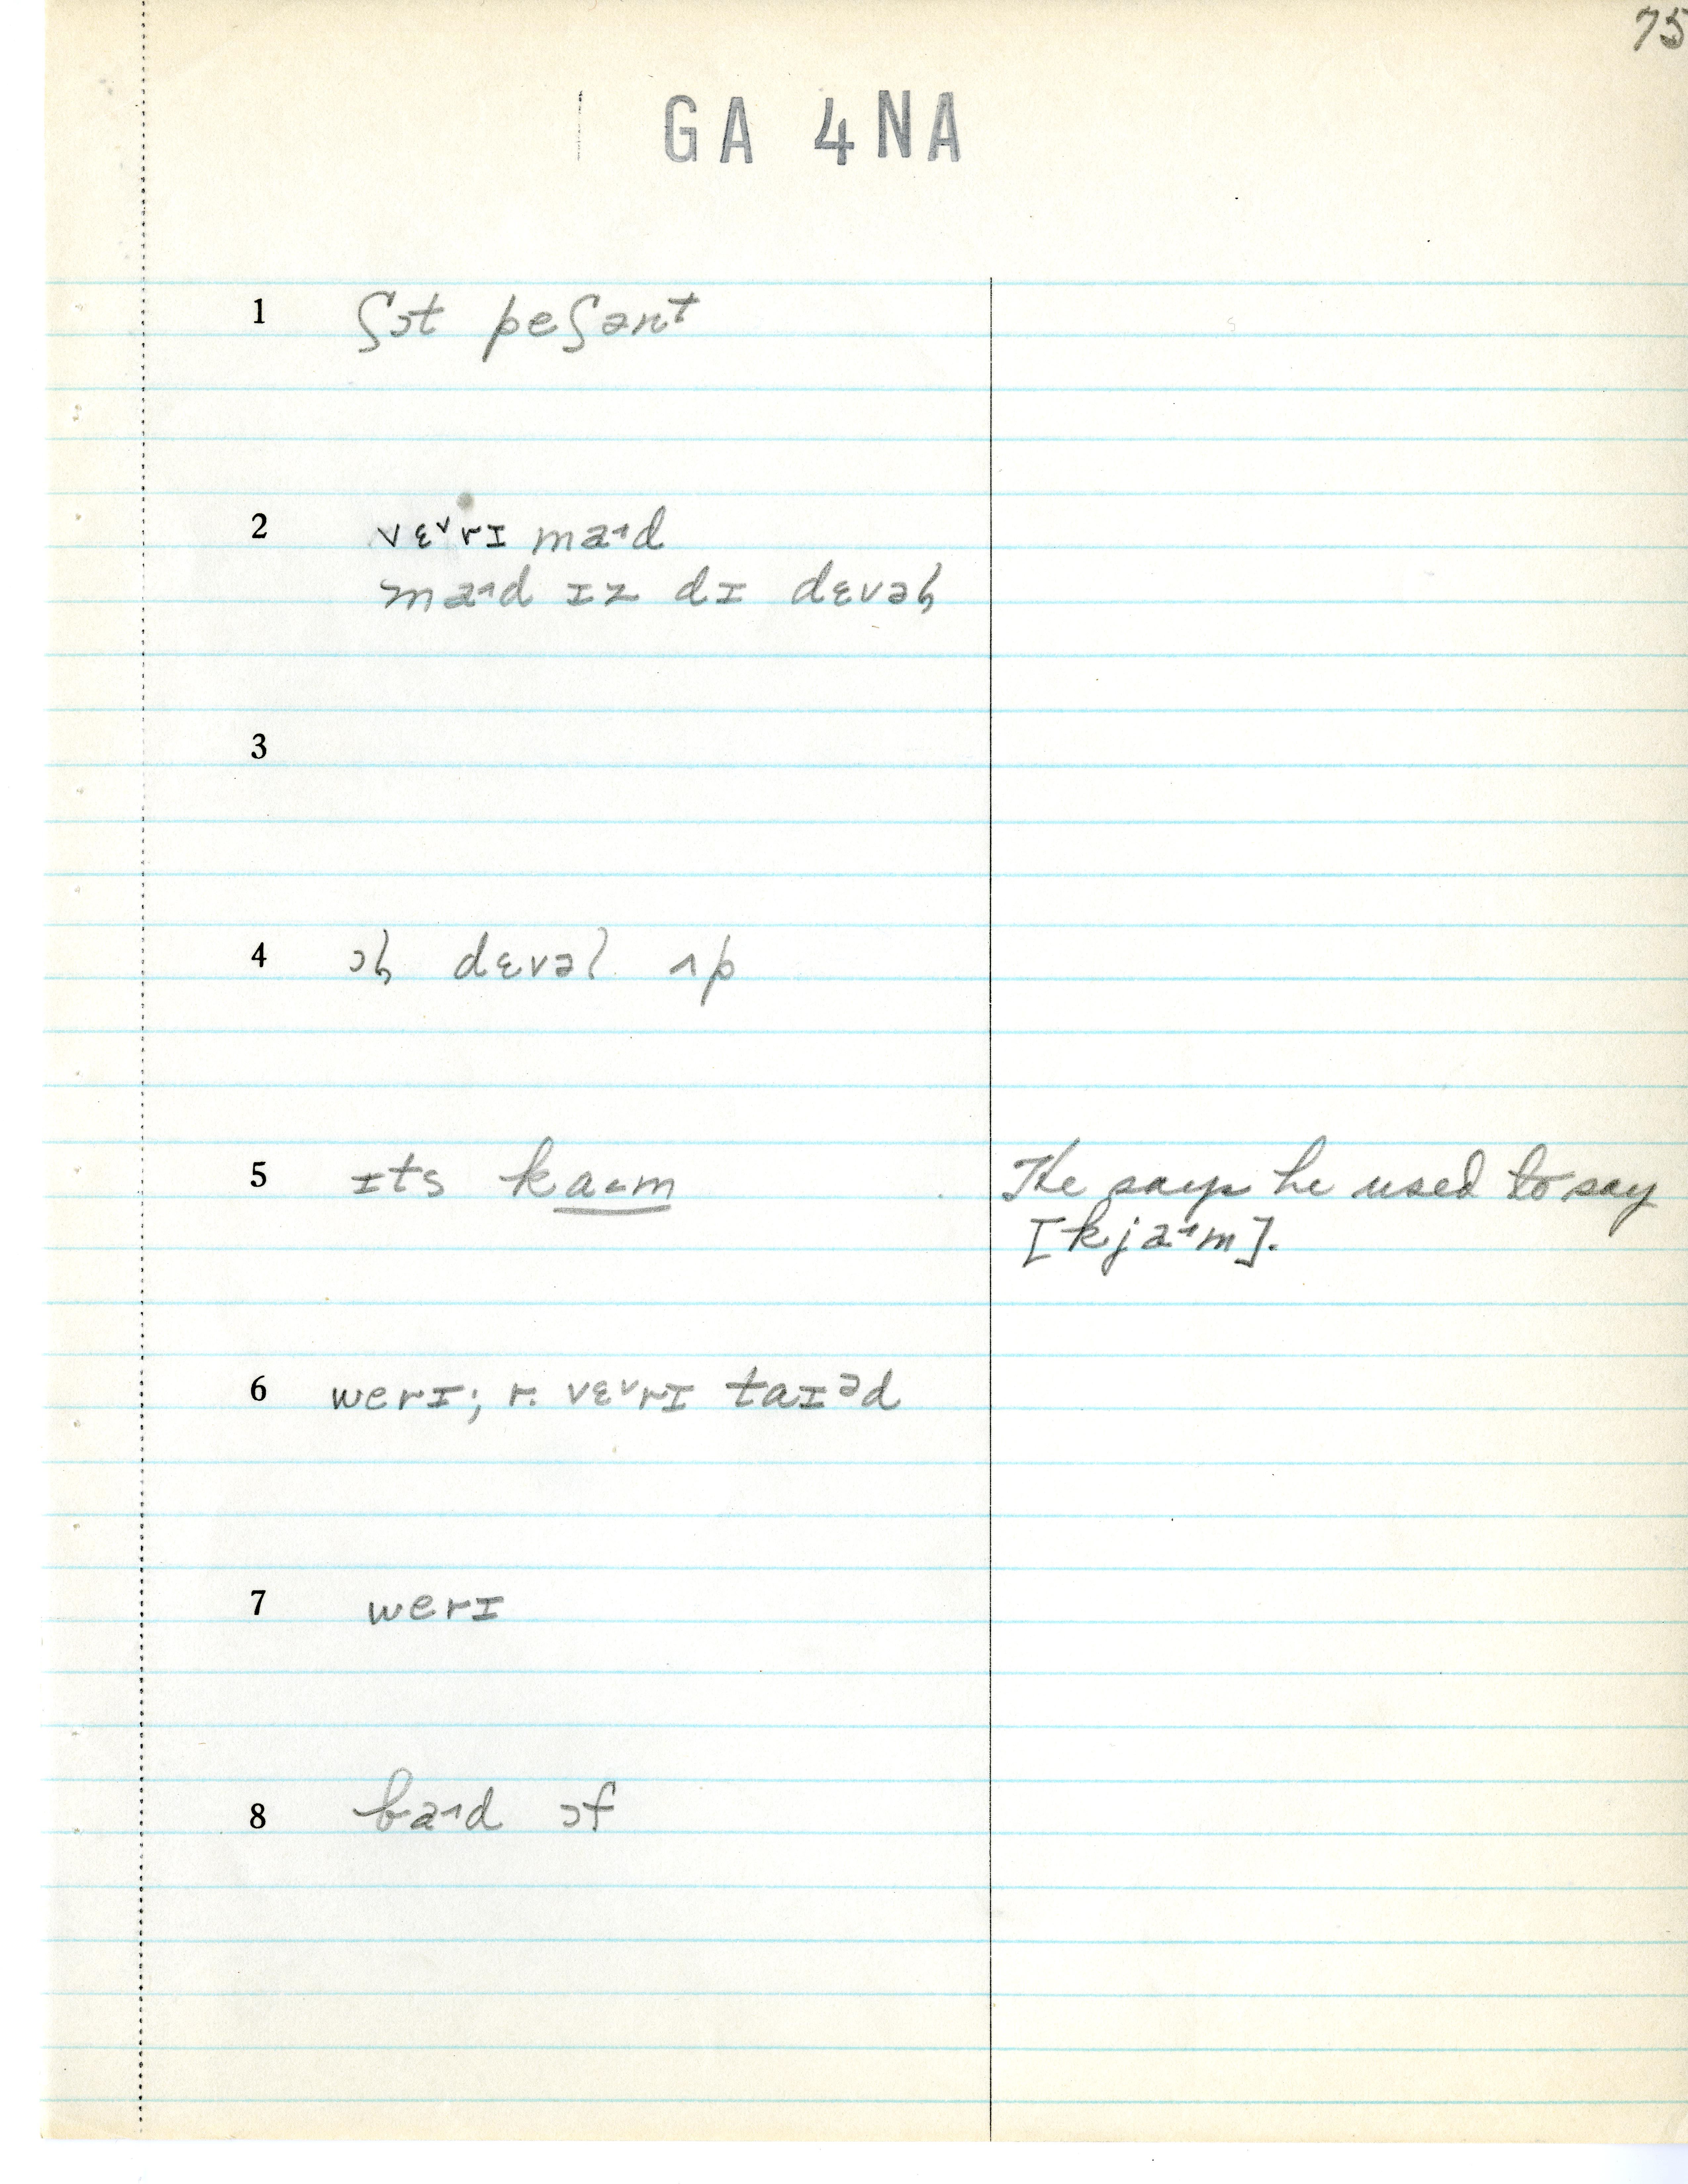 75
GA 4NA
1 ʃɔt peʃənt
2 vɛ˅rɪ ma˓d
ma˓d ɪz dɪ dɛvəɫ
3
4 ɔɫ dɛvəl ʌp
5 ɪts ka˔m He says he used to say
[kja˓m].
6 werɪ; r. vɛ˅rɪ taɪəd
7 werɪ
8 ha˓d ɔf